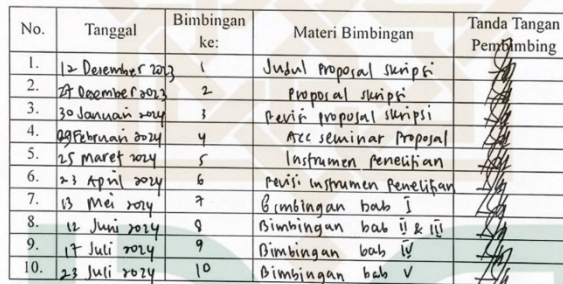 No. Tanggal Bimbingan ke: Materi Bimbingan Tanda Tangan Pembimbing
1. 12 Desember 2023 1 Judul Proposal skripsi
2. 27 Desember 2023 2 Proposal skripsi
3. 30 Januari 2024 3 Revisi proposal skripsi
4. 09 Februari 2024 4 Acc seminar Proposal
5. 25 Maret 2024 5 Instrumen Penelitian
6. 23 April 2024 6 Revisi Instrumen Penelitian
7. 13 Mei 2024 7 Bimbingan bab I
8. 12 Juni 2024 8 Bimbingan bab II & III
9. 17 Juli 2024 9 Bimbingan bab IV
10. 23 Juli 2024 10 Bimbingan bab V